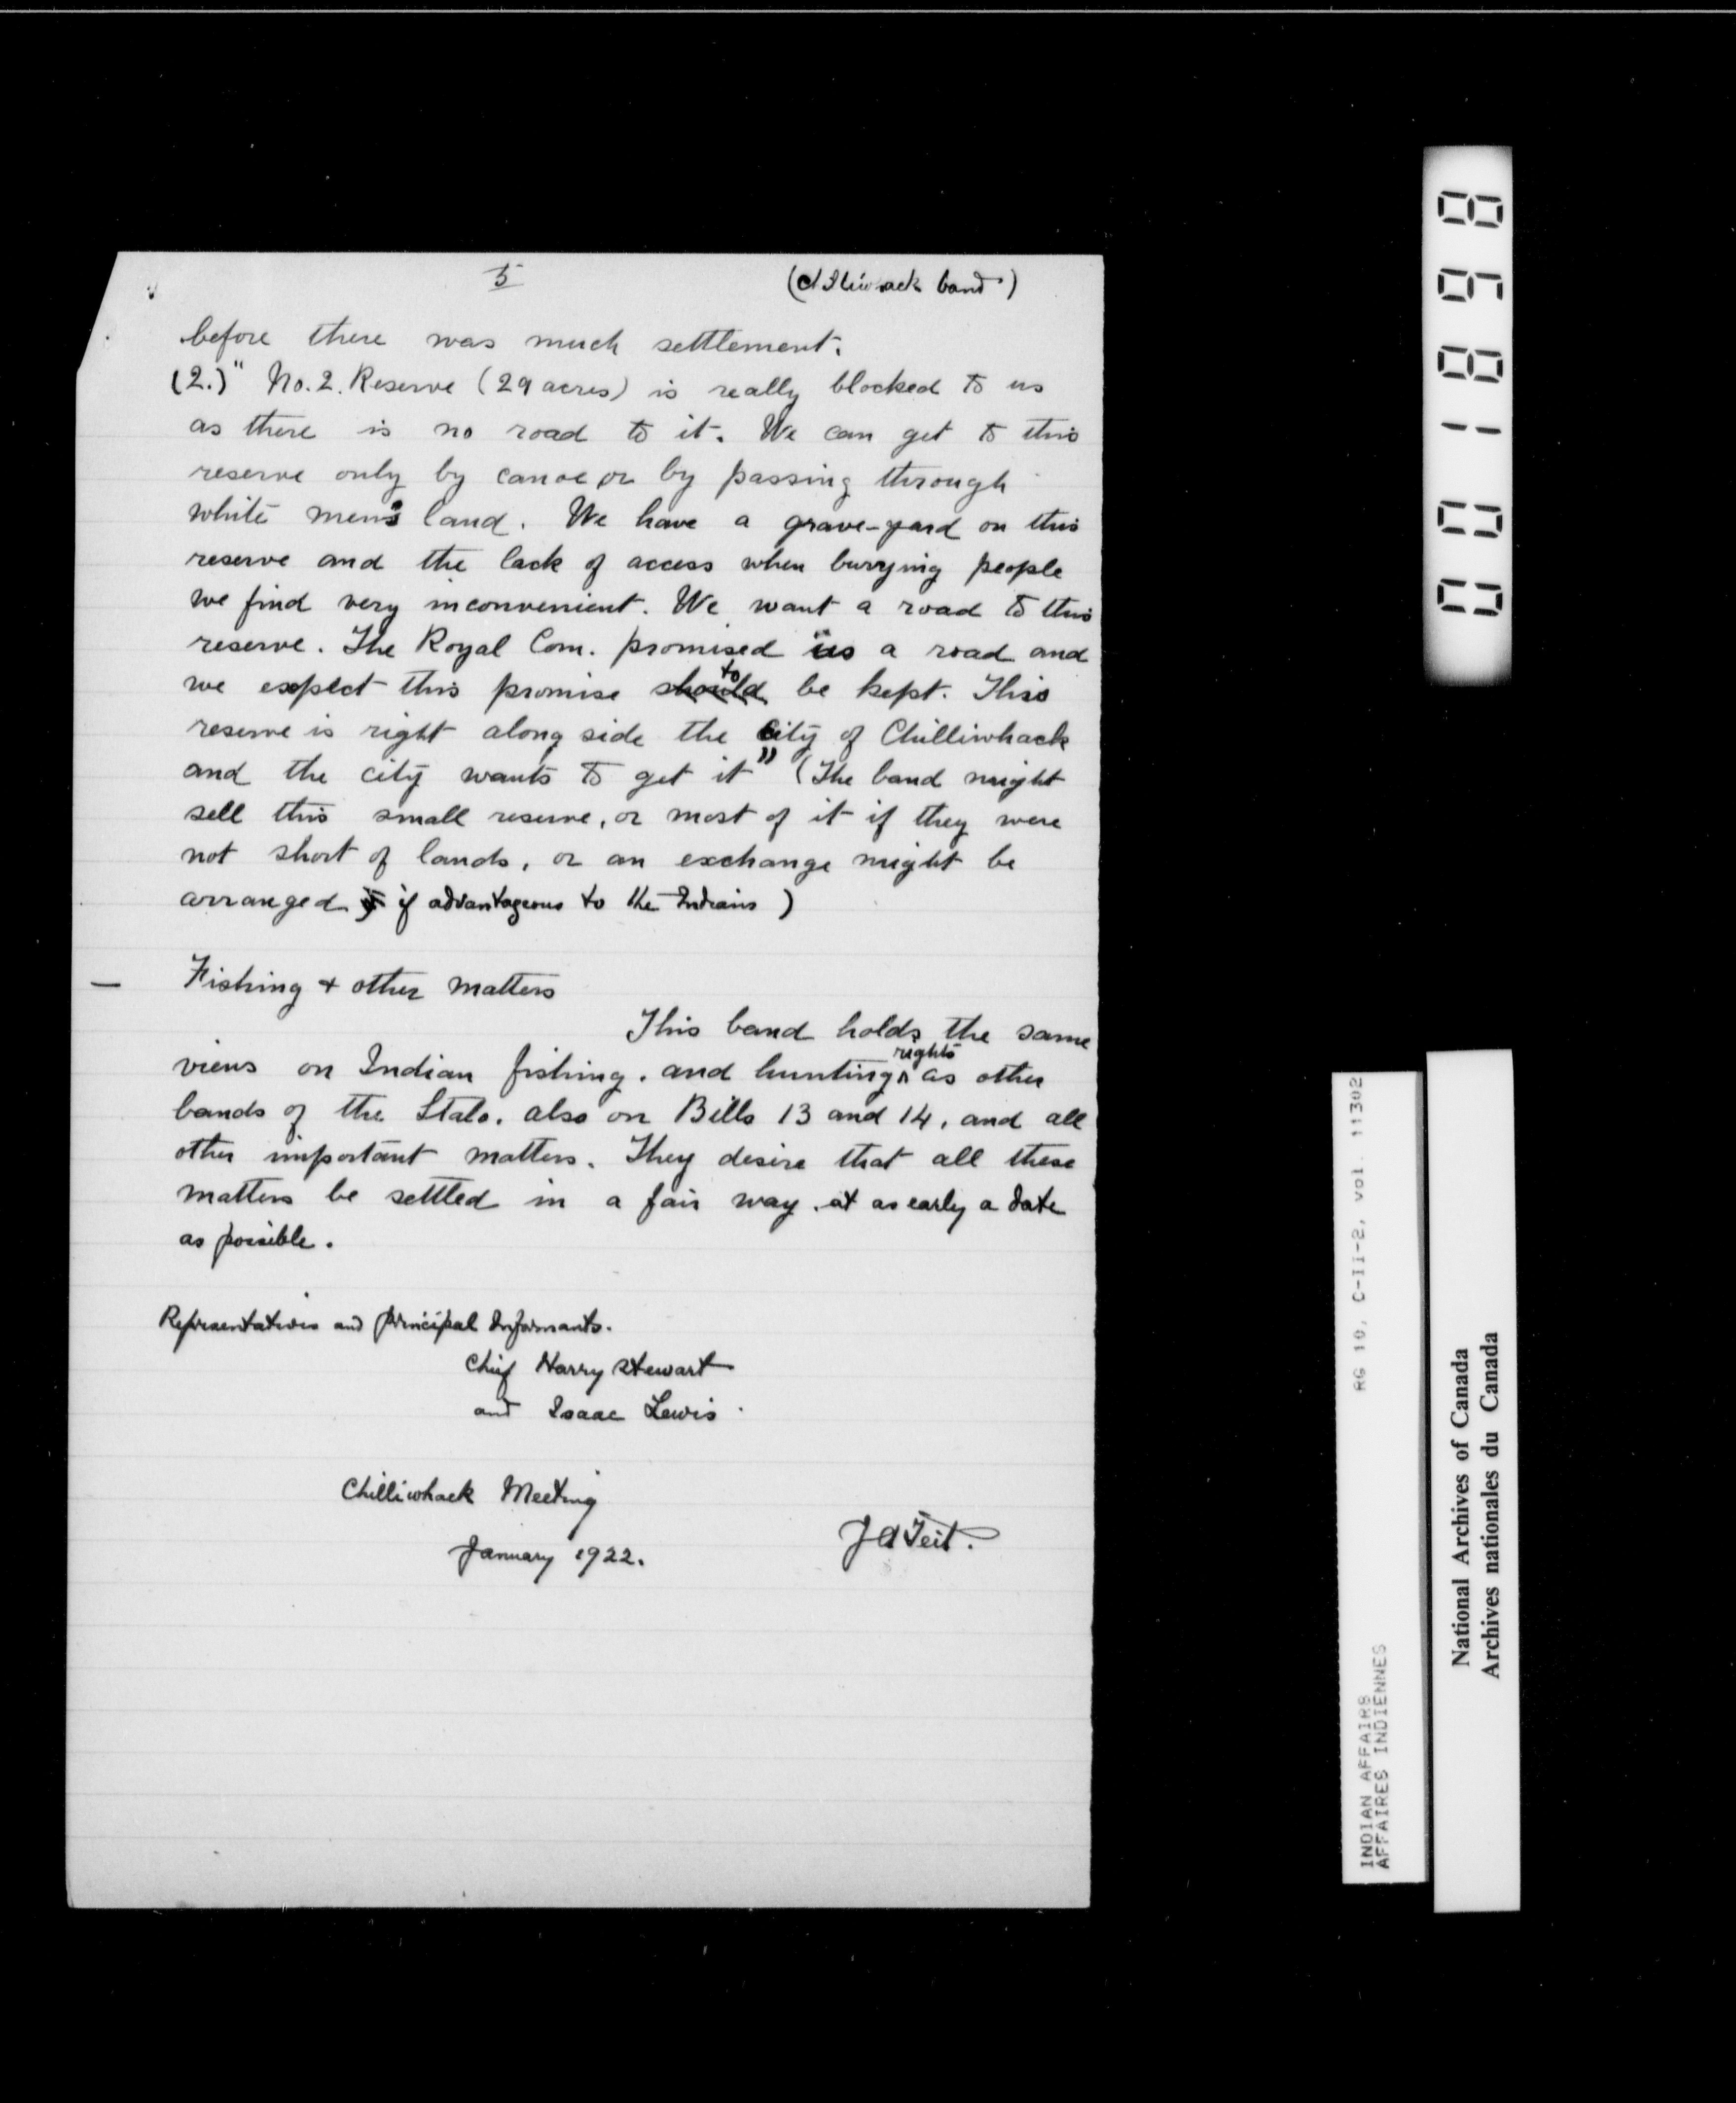 5 (Skwah band)
before there was much settlement.
(2.) " No. 2. Reserve (29 acres) is really blocked to us
as there is no road to it. We can get to this
reserve only by canoe, or by passing through
white men's land. We have a grave-yard on this
reserve and the lack of access when burying people
we find very inconvenient. We want a road to this
reserve. The Royal Com. promised us a road and
we expect this promise to be kept. This
reserve is right along side the city of Chilliwhack
and the city wants to get it" (The band might
sell this small reserve, or most of it if they were
not short of lands, or an exchange might be
arranged if advantageous to the Indians)
— Fishing + other matters
This band holds the same
views on Indian fishing, and hunting rights as other
bands of the Stalo. also on Bills 13 and 14, and all
other important matters. They desire that all these
matters be settled in a fair way. at as early a date
as possible.
Representatives and principal Informants.
Chief Harry Stewart
and Isaac Lewis.
Chilliwhack Meeting
January 1922.
J A Teit.
001898
RG 10, C-II-2, vol. 11302
INDIAN AFFAIRS
AFFAIRES INDIENNES
National Archives of Canada
Archives nationales du Canada